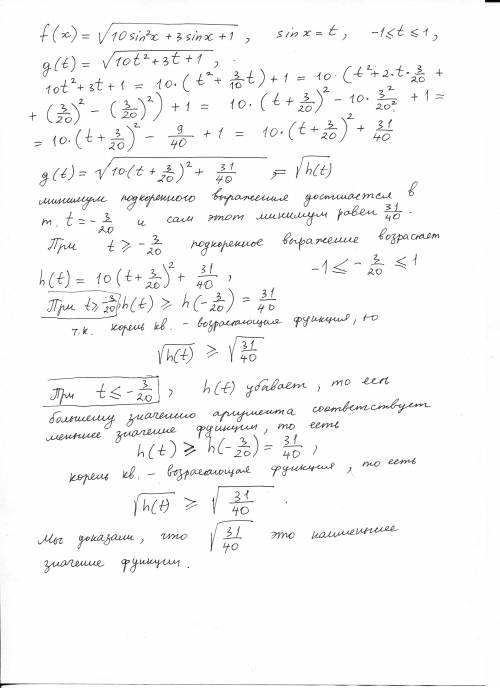 f(x) = √(10sin²x + 3sinx + 1), sin x = t, -1≤t≤1,
g(t) = √(10t² + 3t + 1),
10t² + 3t + 1 = 10·(t² + 3/10 t) + 1 = 10·(t² + 2·t·3/20 +
+ (3/20)² - (3/20)²) + 1 = 10·(t + 3/20)² - 10·3²/20² + 1 =
= 10·(t + 3/20)² - 9/40 + 1 = 10·(t + 3/20)² + 31/40
g(t) = √(10(t + 3/20)² + 31/40) = √h(t)
минимум подкоренного выражения достигается в
т. t = -3/20 и сам этот минимум равен 31/40.
При t ≥ -3/20 подкоренное выражение возрастает
h(t) = 10(t + 3/20)² + 31/40, -1 ≤ -3/20 ≤ 1
При t ≥ -3/20 h(t) ≥ h(-3/20) = 31/40
т.к. корень кв. - возрастающая функция, то
√h(t) ≥ √(31/40)
При t ≤ -3/20, h(t) убывает, то есть
большему значению аргумента соответствует
меньшее значение функции, то есть
h(t) ≥ h(-3/20) = 31/40,
корень кв. - возрастающая функция, то есть
√h(t) ≥ √(31/40).
Мы доказали, что √(31/40) это наименьшее
значение функции.